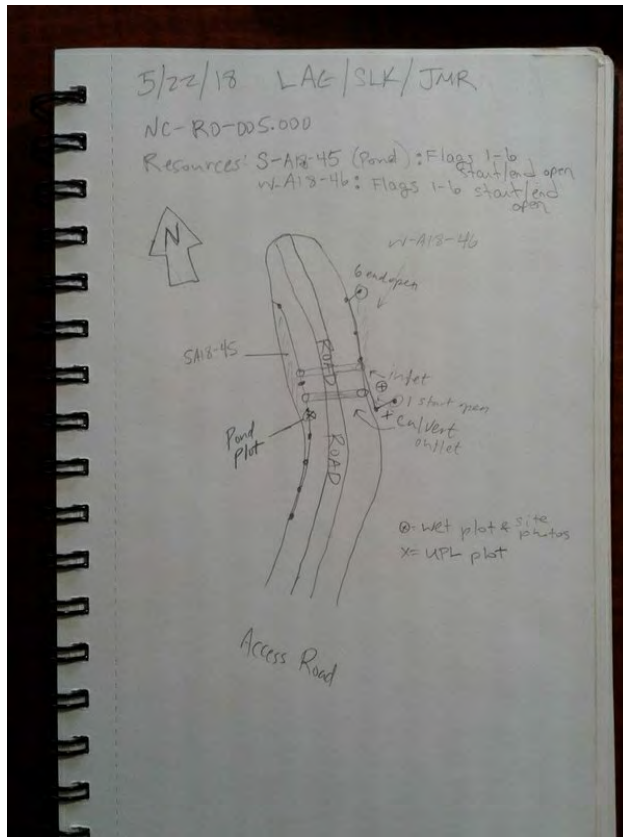 5/22/18 LAE/SLK/JMR
NC-RD-005.000
Resources: S-A18-45 (Pond): Flags 1-6
start/end open
W-A18-46: Flags 1-6 start/end
open
N
W-A18-46
6 end open
SA18-45
ROAD
inlet
1 start open
Calvert
outlet
Pond
Plot
ROAD
⊗- wet plot & site
photos
X= UPL plot
Access Road